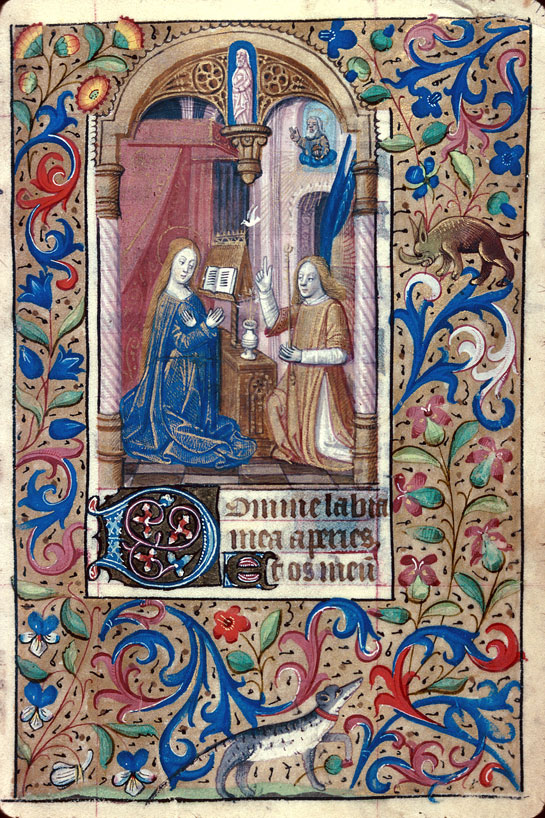 Domine labia
mea aperies,
Et os meu